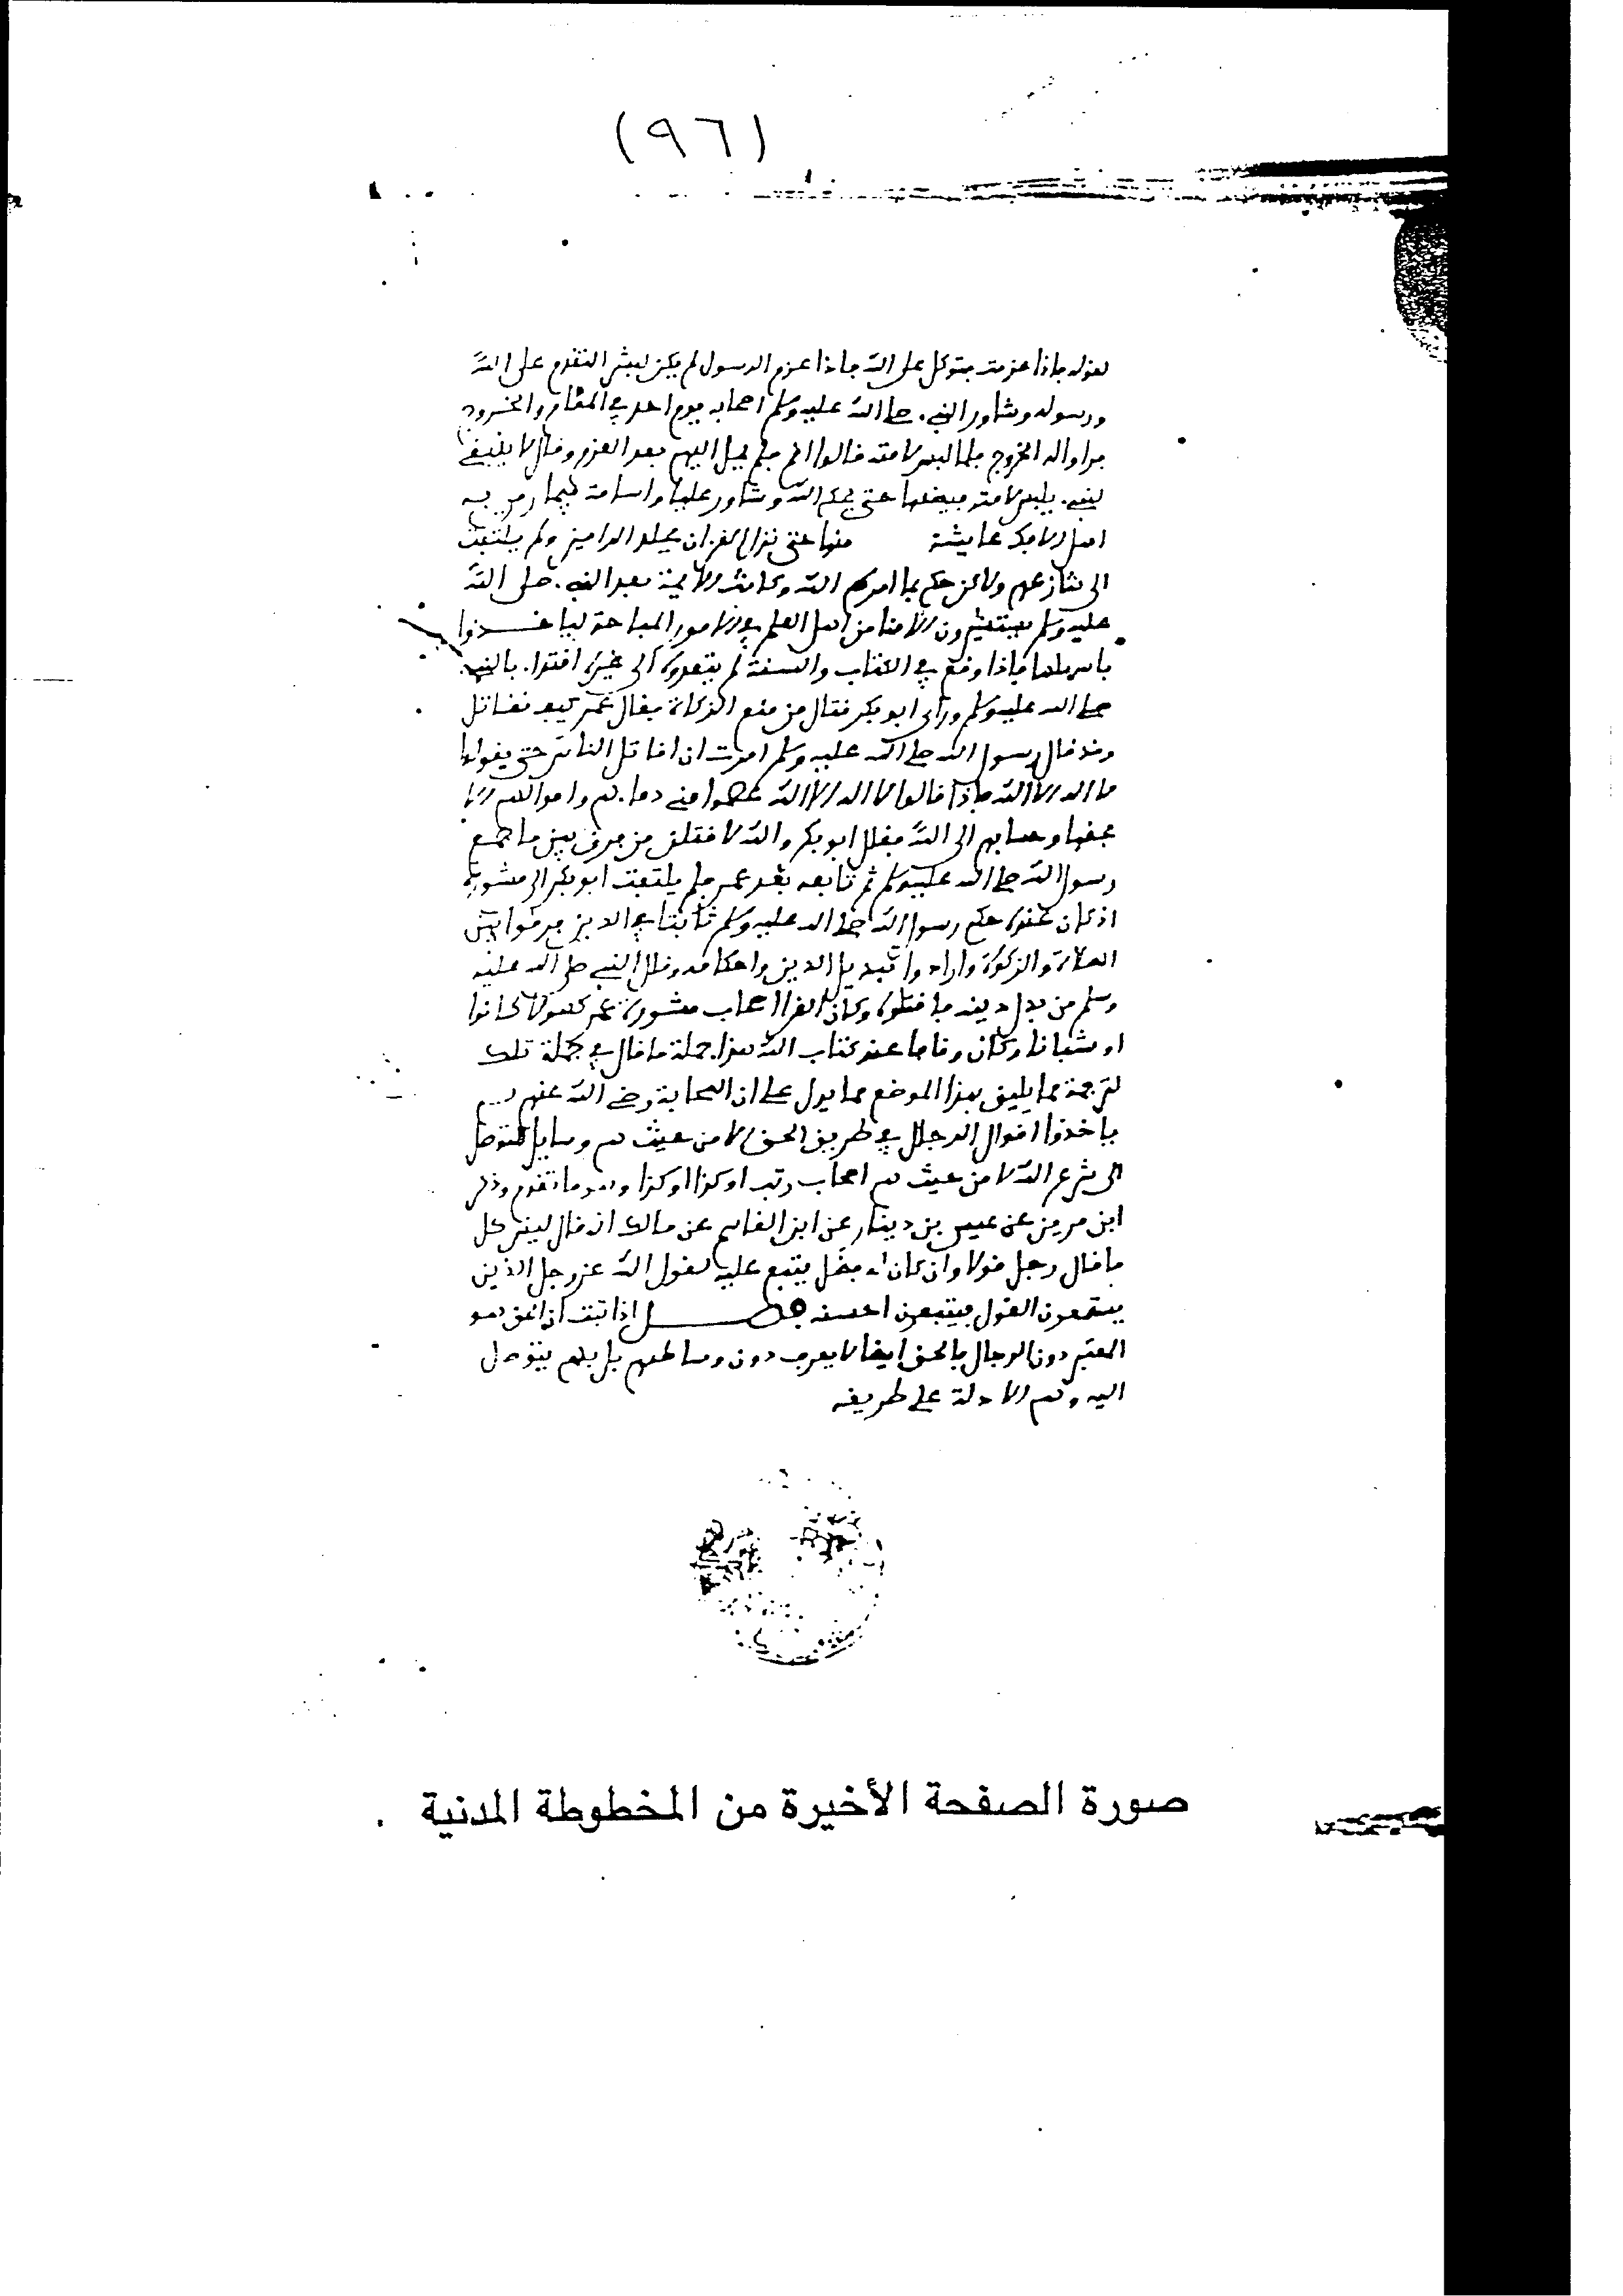 (٩٦)
لقوله فإذا عزمت فتوكل على الله فإذا عزم الرسول لم يكن لبشر التقدم على الله
ورسوله وشاور النبي صلى الله عليه وسلم اصحابه يوم احد في المقام والخروج
فراوا له الخروج فلما لبس لامته قالوا اقم فلم يمل اليهم بعد العزم وقال لا ينبغي
لنبي يلبس لامته فيضعها حتى يحكم الله وشاور عليا واسامة فيما رمى به
اهل الافك عايشة فسمع منهما حتى نزل القران فجلد الرامين ولم يلتفت
الى تنازعهم ولاكن حكم بما امره الله وكانت الايمة بعد النبي صلى الله
عليه وسلم يستشيرون الامنا من اهل العلم في الامور المباحة لياخذوا
باسهلها فإذا وقع في الكتاب والسنة لم يتعدوه الى غيره اقتدا بالنبي
صلى الله عليه وسلم وراى ابو بكر قتال من منع الزكاة فقال عمر كيف تقاتل
وقد قال رسول الله صلى الله عليه وسلم امرت ان اقاتل الناس حتى يقولوا
لا اله الا الله فإذا قالوا لا اله الا الله عصموا مني دماهم واموالهم الا
بحقها وحسابهم على الله فقال ابو بكر والله لاقاتلن من فرق بين ما جمع
رسول الله صلى الله عليه وسلم ثم تابعه بعد عمر فلم يلتفت ابو بكر الى مشورة
اذ كان عنده حكم رسول الله صلى الله عليه وسلم ثابتا في الذين فرقوا بين
الصلاة والزكوة وارادوا تبديل الدين واحكامه وقال النبي صلى الله عليه
وسلم من بدل دينه فاقتلوه وكان القرا اصحاب مشورة عمر كهولا كانوا
او شبانا وكان وقافا عند كتاب الله هذا جملة ما قال في جملة تلك
لترجمة مما يليق بهذا الموضع مما يدل على ان الصحابة رضي الله عنهم لم
ياخذوا اقوال الرجال في طريق الحق الا من حيث هم وسايل للتوصل
الى شرع الله لا من حيث هم اصحاب رتب او كذا او كذا وهو ما تقدم وذكر
ابن مزين عن عيسى بن دينار عن ابن القاسم عن مالك انه قال ليس كل
ما قال رجل قولا وان كان له فضل يتبع عليه لقول الله عز وجل الذين
يستمعون القول فيتبعون احسنه فصل إذا ثبت ان الحق هو
المعتبر دون الرجال فالحق ايضا لا يعرف دون وسايطهم بل بهم يتوصل
اليه وهم الادلة على طريقه
صورة الصفحة الأخيرة من المخطوطة المدنية .